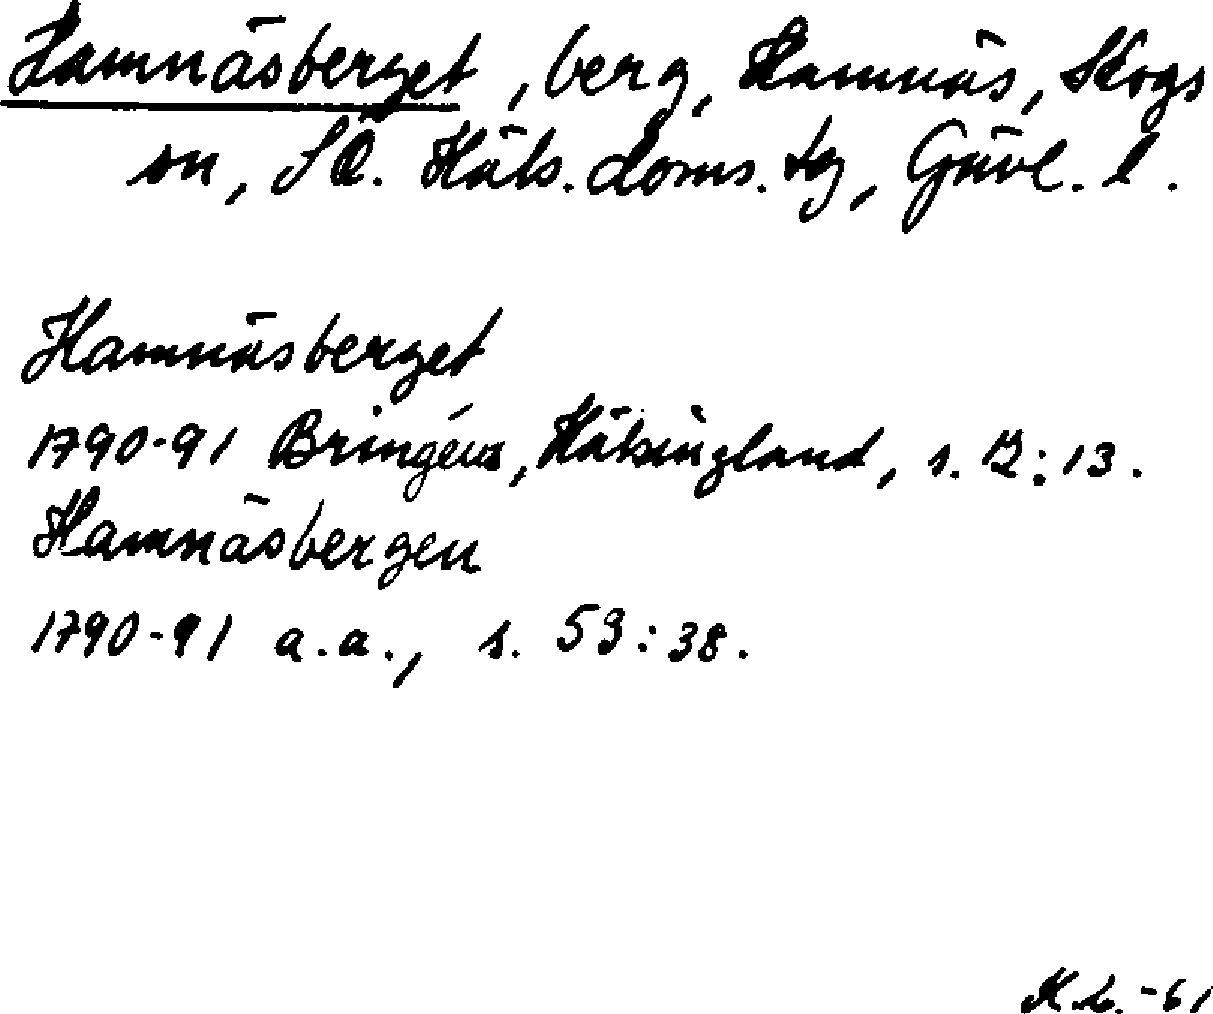 Hamnäsberget, berg, Hamnäs, Skogs
sn, SÖ. Häls. doms. tg, Gävl. l.
Hamnäsberget
1790-91 Bringéus, Hälsingland, s. 12:13.
Hamnäsbergen
1790-91 a.a., s. 53:38.
K.L. -61